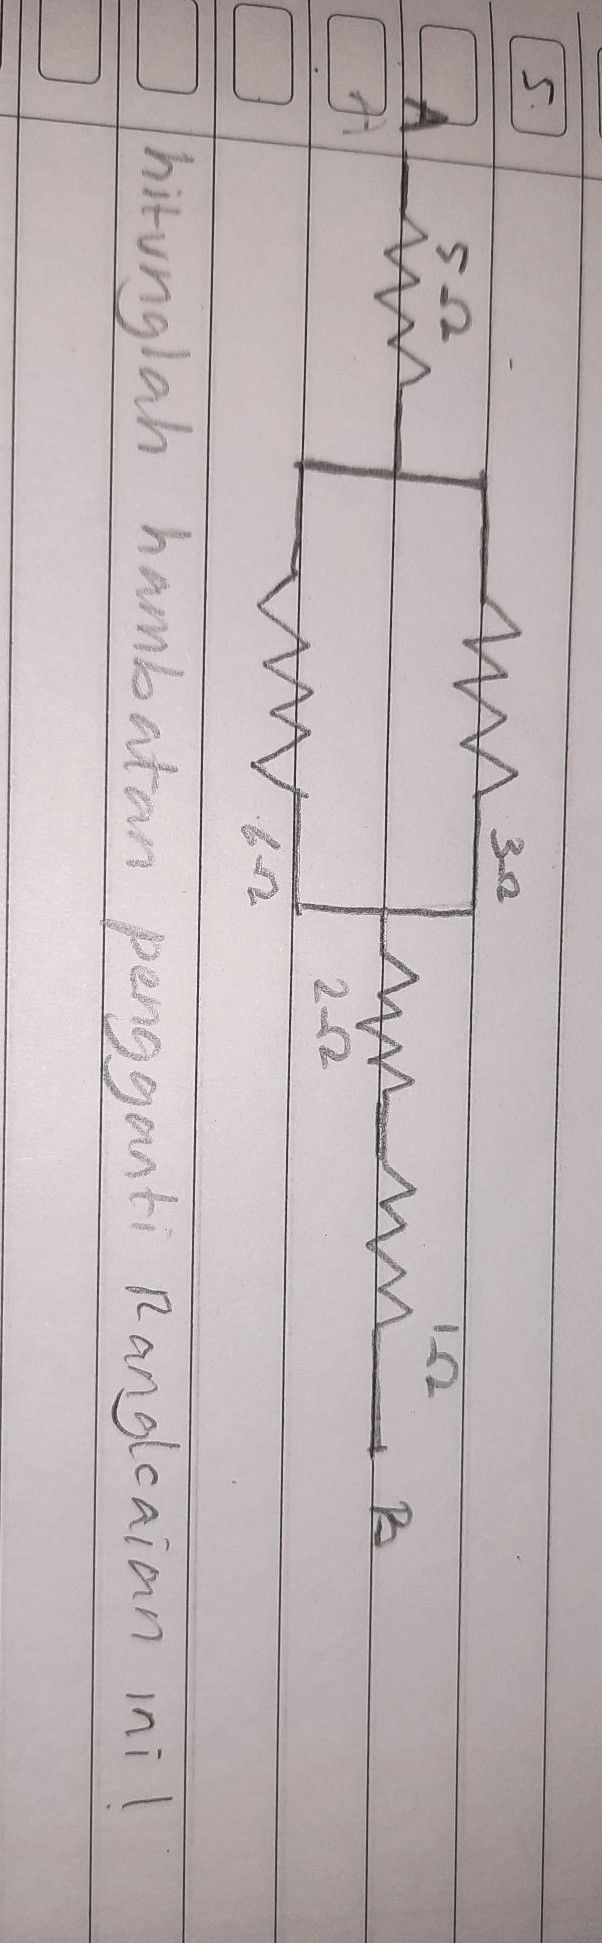 5.
3Ω
5Ω
1Ω
A
B
2Ω
6Ω
hitunglah hambatan pengganti Rangkaian ini!